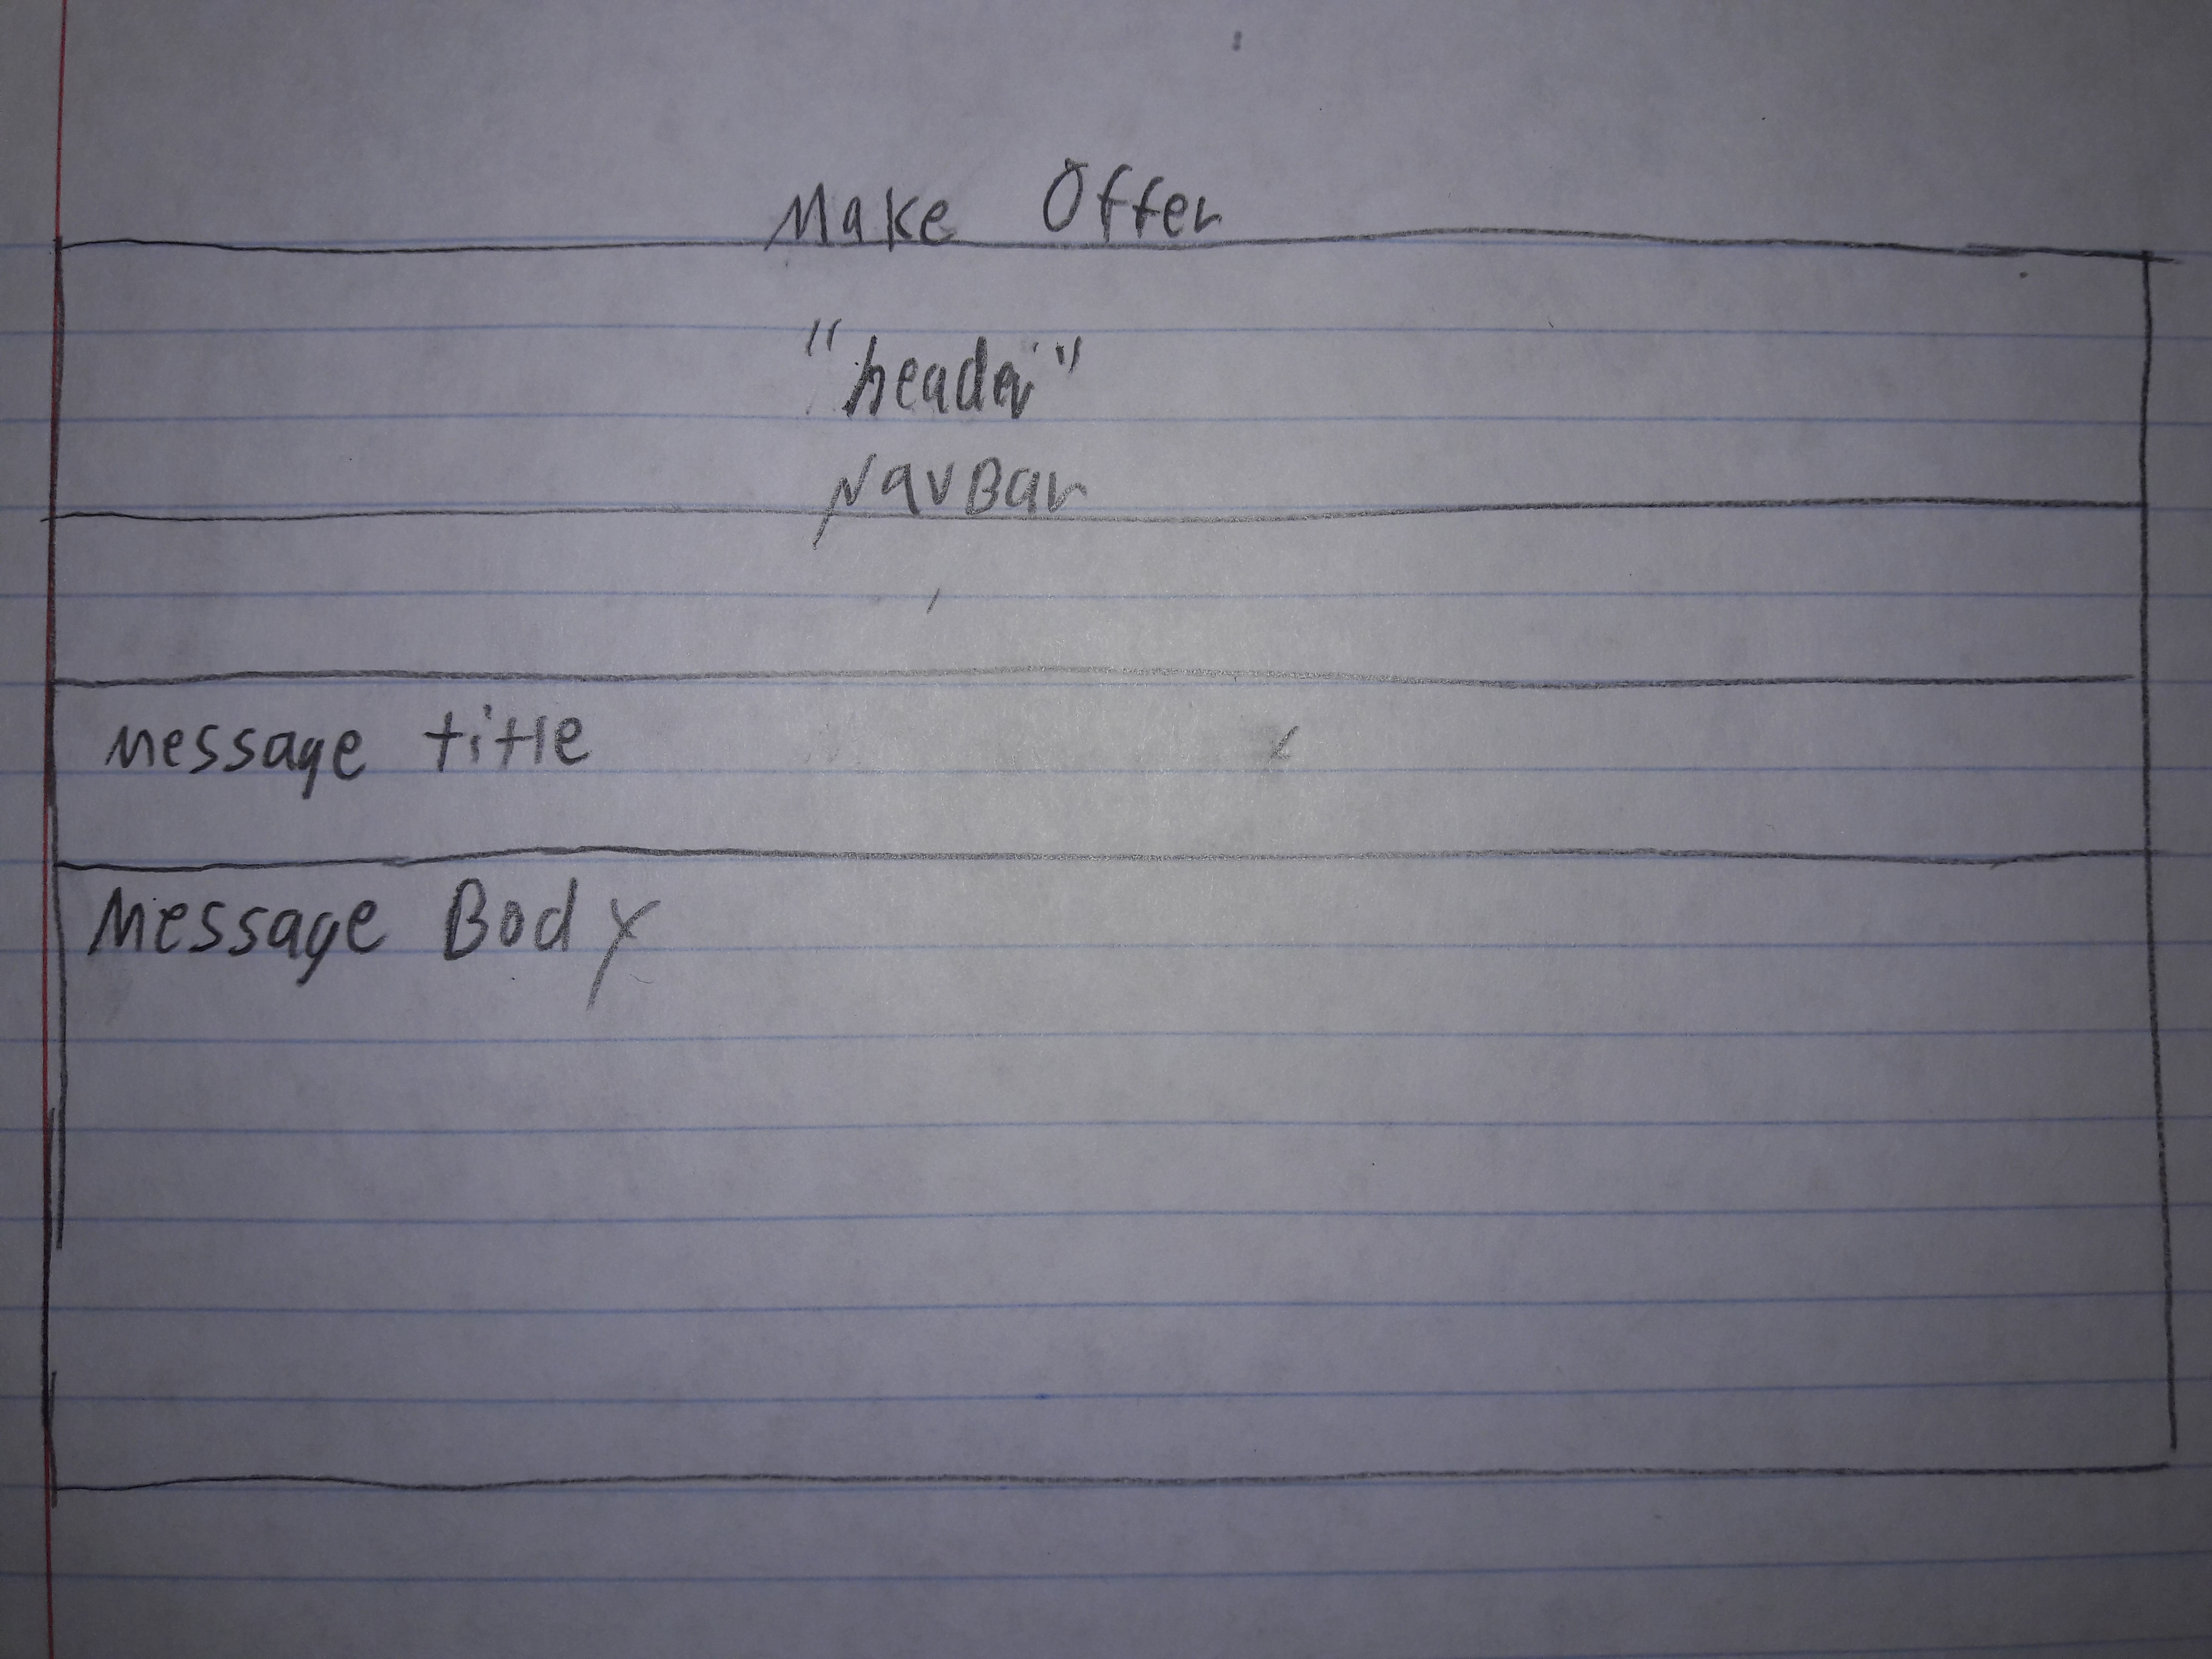 Make Offer
"header"
NavBar
message title
Message Body